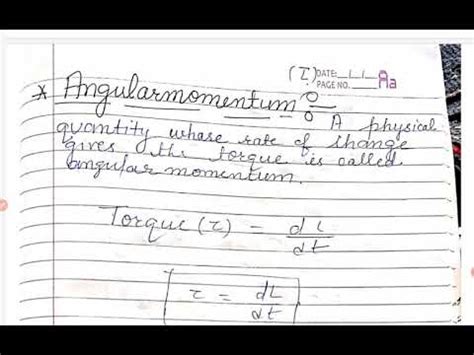 (τ) DATE: / /
PAGE NO. Aa
* Angular momentum :-
A physical
quantity whose rate of change
gives the torque is called
angular momentum.
Torque (τ) = dL/dt
τ = dL/dt